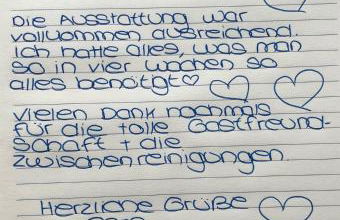 Die Ausstattung war
vollkommen ausreichend.
Ich hatte alles, was man
so in vier Wochen so
alles benötgt♡
Vielen Dank nochmals
für die tolle Gastfreund-
schaft + die
Zwischenreinigungen.
Herzliche Grüße